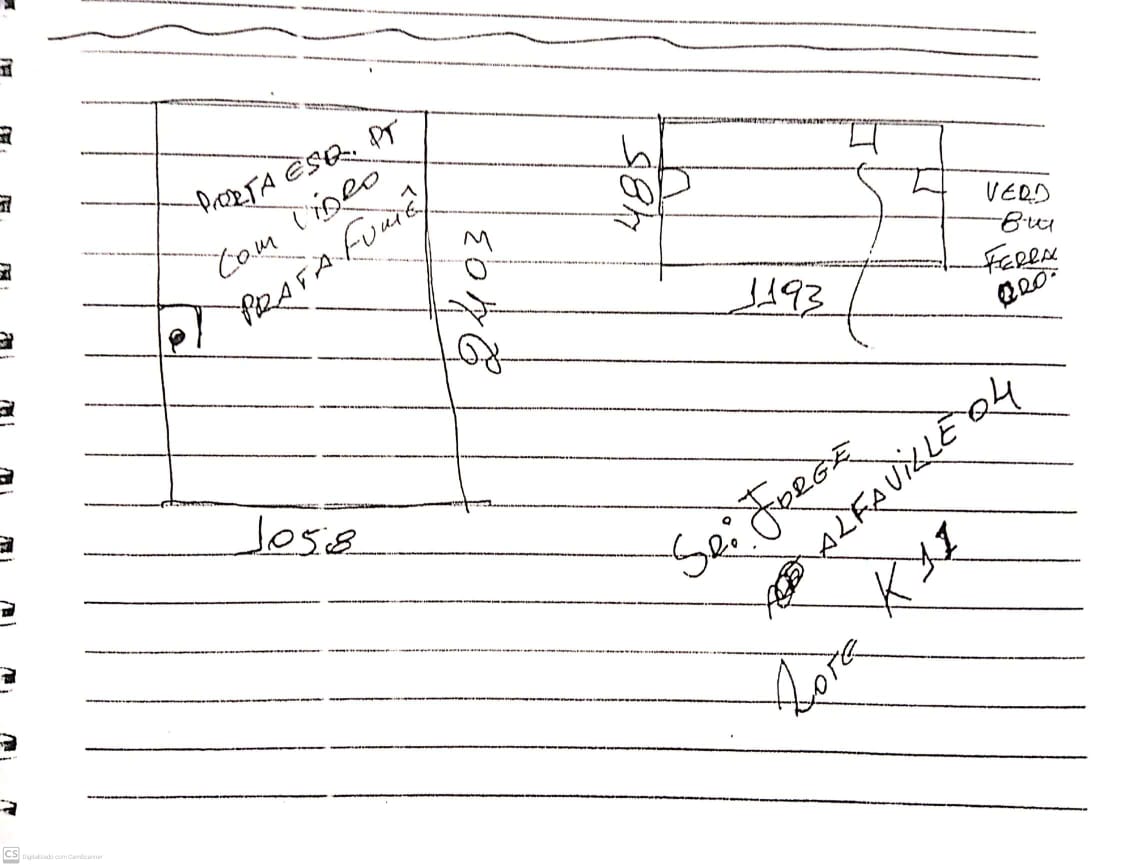 PORTA ESQ. PT
COM VIDRO
PRATA FUMÊ
2403
1058
485
1193
VERD
8 mm
FERRA
Sr: JORGE
ALFAVILLE 04
K 11
LOTE
CS Digitalizado com CamScanner